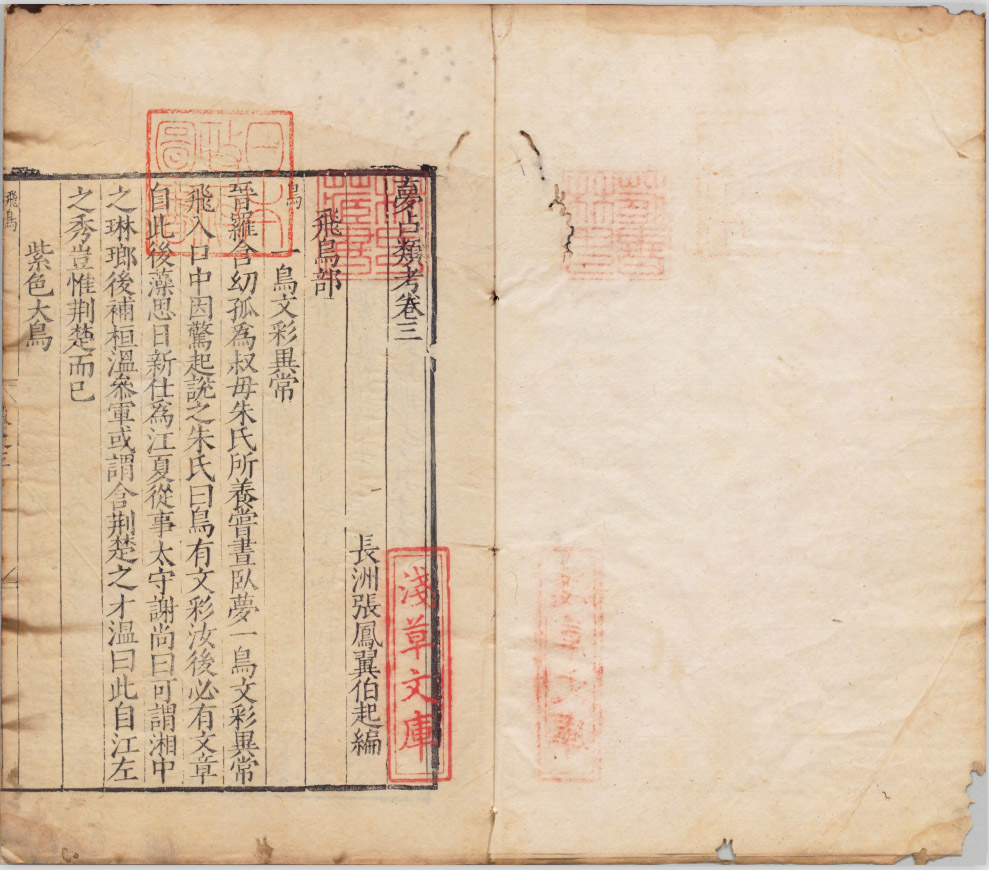 夢占類考卷三
長洲張鳳翼伯起編
飛鳥部
鳥
一鳥文彩異常
晉羅含幼孤爲叔母朱氏所養嘗晝臥夢一鳥文彩異常
飛入口中因驚起說之朱氏曰鳥有文彩汝後必有文章
自此後藻思日新仕爲江夏從事太守謝尚曰可謂湘中
之琳瑯後補桓溫叅軍或謂含荆楚之才溫曰此自江左
之秀豈惟荆楚而已
紫色大鳥
飛鳥
淺草文庫